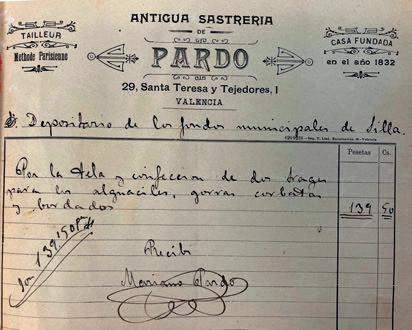 ANTIGUA SASTRERIA
DE
PARDO
29, Santa Teresa y Tejedores, 1
VALENCIA
TAILLEUR
Methode Parisienne
CASA FUNDADA
en el año 1832
Depositario de los fondos municipales de Silla.
Pesetas Cs.
Por la tela y confeccion de dos trages
para los alguaciles, gorras corbatas
y bordados 139 50
Son 139'50
Recibi
Mariano Pardo